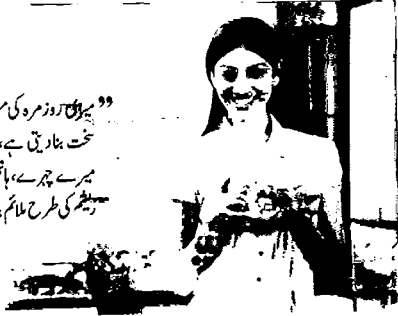 ”میری روزمرہ کی
سخت بنا دیتی ہے،
میرے چہرے،
ریشم کی طرح ملائم